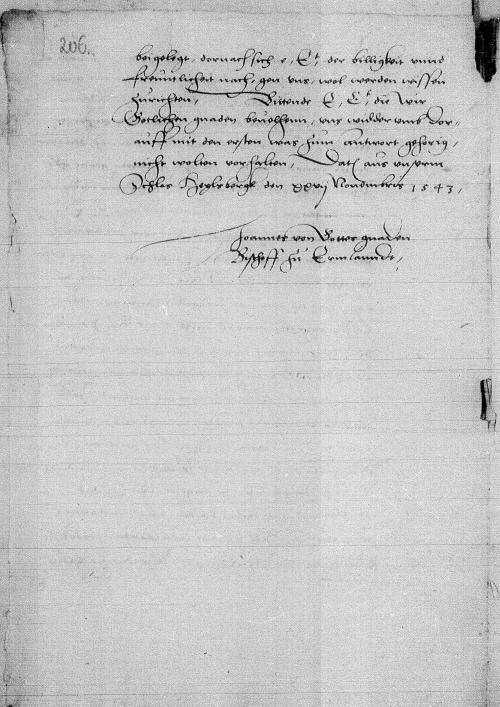 206.
beigelegt, dornach sich e. Et. der billigkeit unnd
freuntlicheit nach, gen uns, wol werden wissen
zurichten, Bittende E. Et. die wir
Gotlichen gnaden bevelhenn, uns widder umb dor-
auff mit den ersten was zum antwort gehorig,
nicht wolten vorhalten, Dat aus unserm
Schlos Heylsbergk den xxvij Novembris 1543,
Joannes von Gottes gnaden
Bischoff zu Ermlanndt,